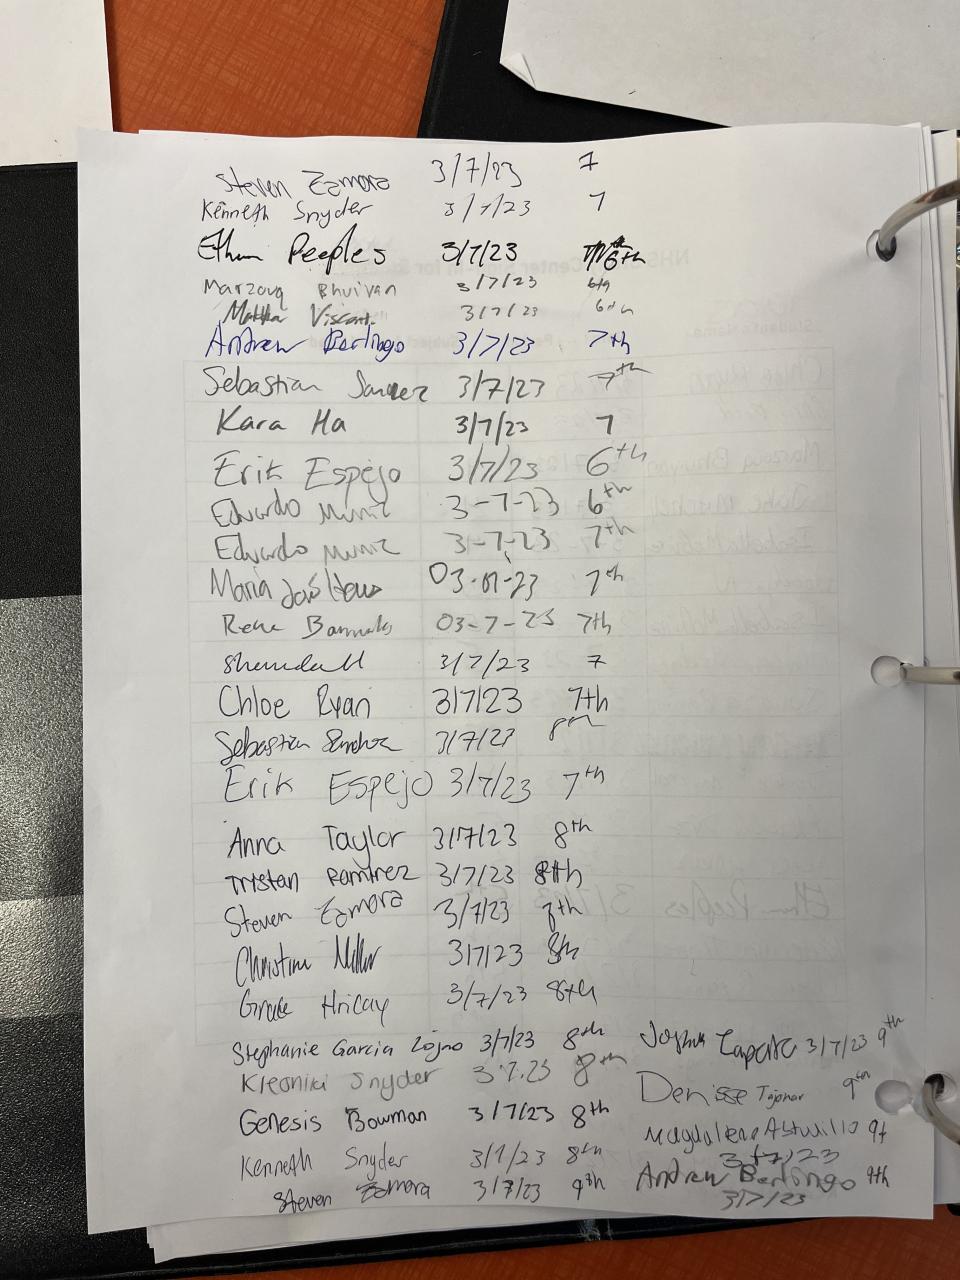 Steven Zamora 3/7/23 7
Kenneth Snyder 3/7/23 7
Ethan Peeples 3/7/23 6th
Marzouq Bhuiyan 3/7/23
3/7/23 6th
Andrew Berlingo 3/7/23 7th
Sebastian 3/7/23 7th
Kara Ha 3/7/23 7
Erik Espejo 3/7/23 6th
Edvardo Muniz 3-7-23 6th
Edvardo Muniz 3-7-23 7th
Maria José 03-07-23 7th
Rene 03-7-23 7th
3/7/23 7
Chloe Ryan 3/7/23 7th
Sebastian Sanchez 3/7/23 8th
Erik Espejo 3/7/23 7th
Anna Taylor 3/7/23 8th
Tristan Ramirez 3/7/23 8th
Steven Zamora 3/7/23
Christine Miller 3/7/23 8th
Grace Hricay 3/7/23 8th
Stephanie Garcia 3/7/23 8th
Snyder 3.7.23 8th
Genesis Bowman 3/7/23 8th
Kenneth Snyder 3/7/23 8th
Steven Zamora 3/7/23 9th
Joshua 3/7/23 9th
Denisse 9th
Magdalena Astudillo 9t
3/7/23
Andrew Berlongo 9th
3/7/23